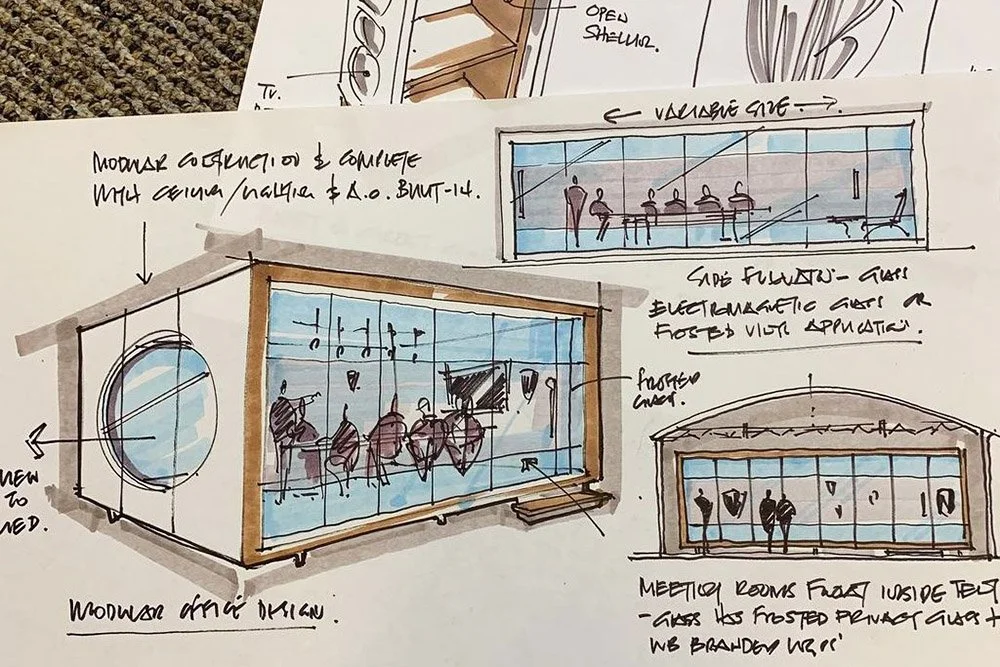 OPEN
SHELVING.
TV.
← VARIABLE SIZE →
MODULAR CONSTRUCTION & COMPLETE
WITH CEILING/LIGHTING & A.O. BUILT-IN.
SIDE ELEVATION - GLASS
ELECTROMAGNETIC GLASS OR
FROSTED VINYL APPLICATION.
FROSTED
GLASS.
VIEW
TO
MODULAR OFFICE DESIGN.
MEETING ROOMS FLOAT INSIDE TENT
- GLASS HAS FROSTED PRIVACY GLASS +
WB BRANDED